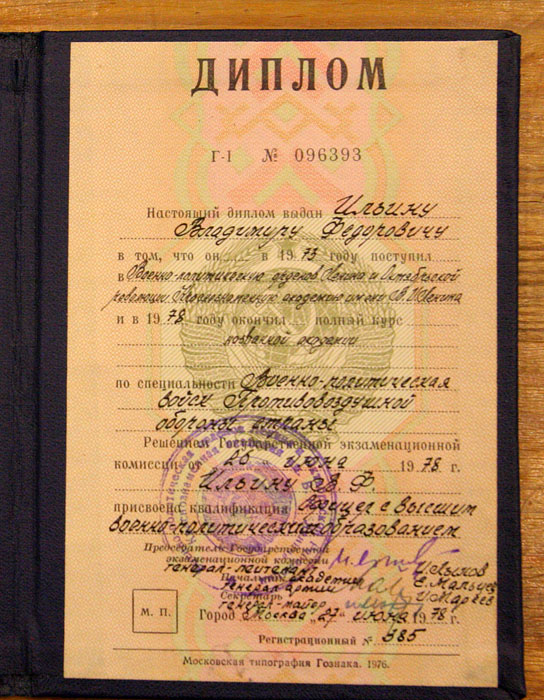 ДИПЛОМ
Г-I № 096393
Настоящий диплом выдан Ильину
Владимиру Федоровичу
в том, что он в 1973 году поступил
в Военно-политическую орденов Ленина и Октябрьской
революции Краснознаменную академию имени В.И.Ленина
и в 1978 году окончил полный курс
названной академии
по специальности Военно-политическая
войск Противовоздушной
обороны страны
Решением Государственной экзаменационной
комиссии от 26 июня 1978 г.
Ильину В.Ф.
присвоена квалификация офицер с высшим
военно-политическим образованием
Председатель Государственной
экзаменационной комиссии
генерал-лейтенант
Начальник академии
генерал армии Е. Мальцев
Секретарь
генерал-майор
М. П.
Город Москва „27“ июня 1978 г.
Регистрационный № 385
Московская типография Гознака. 1976.